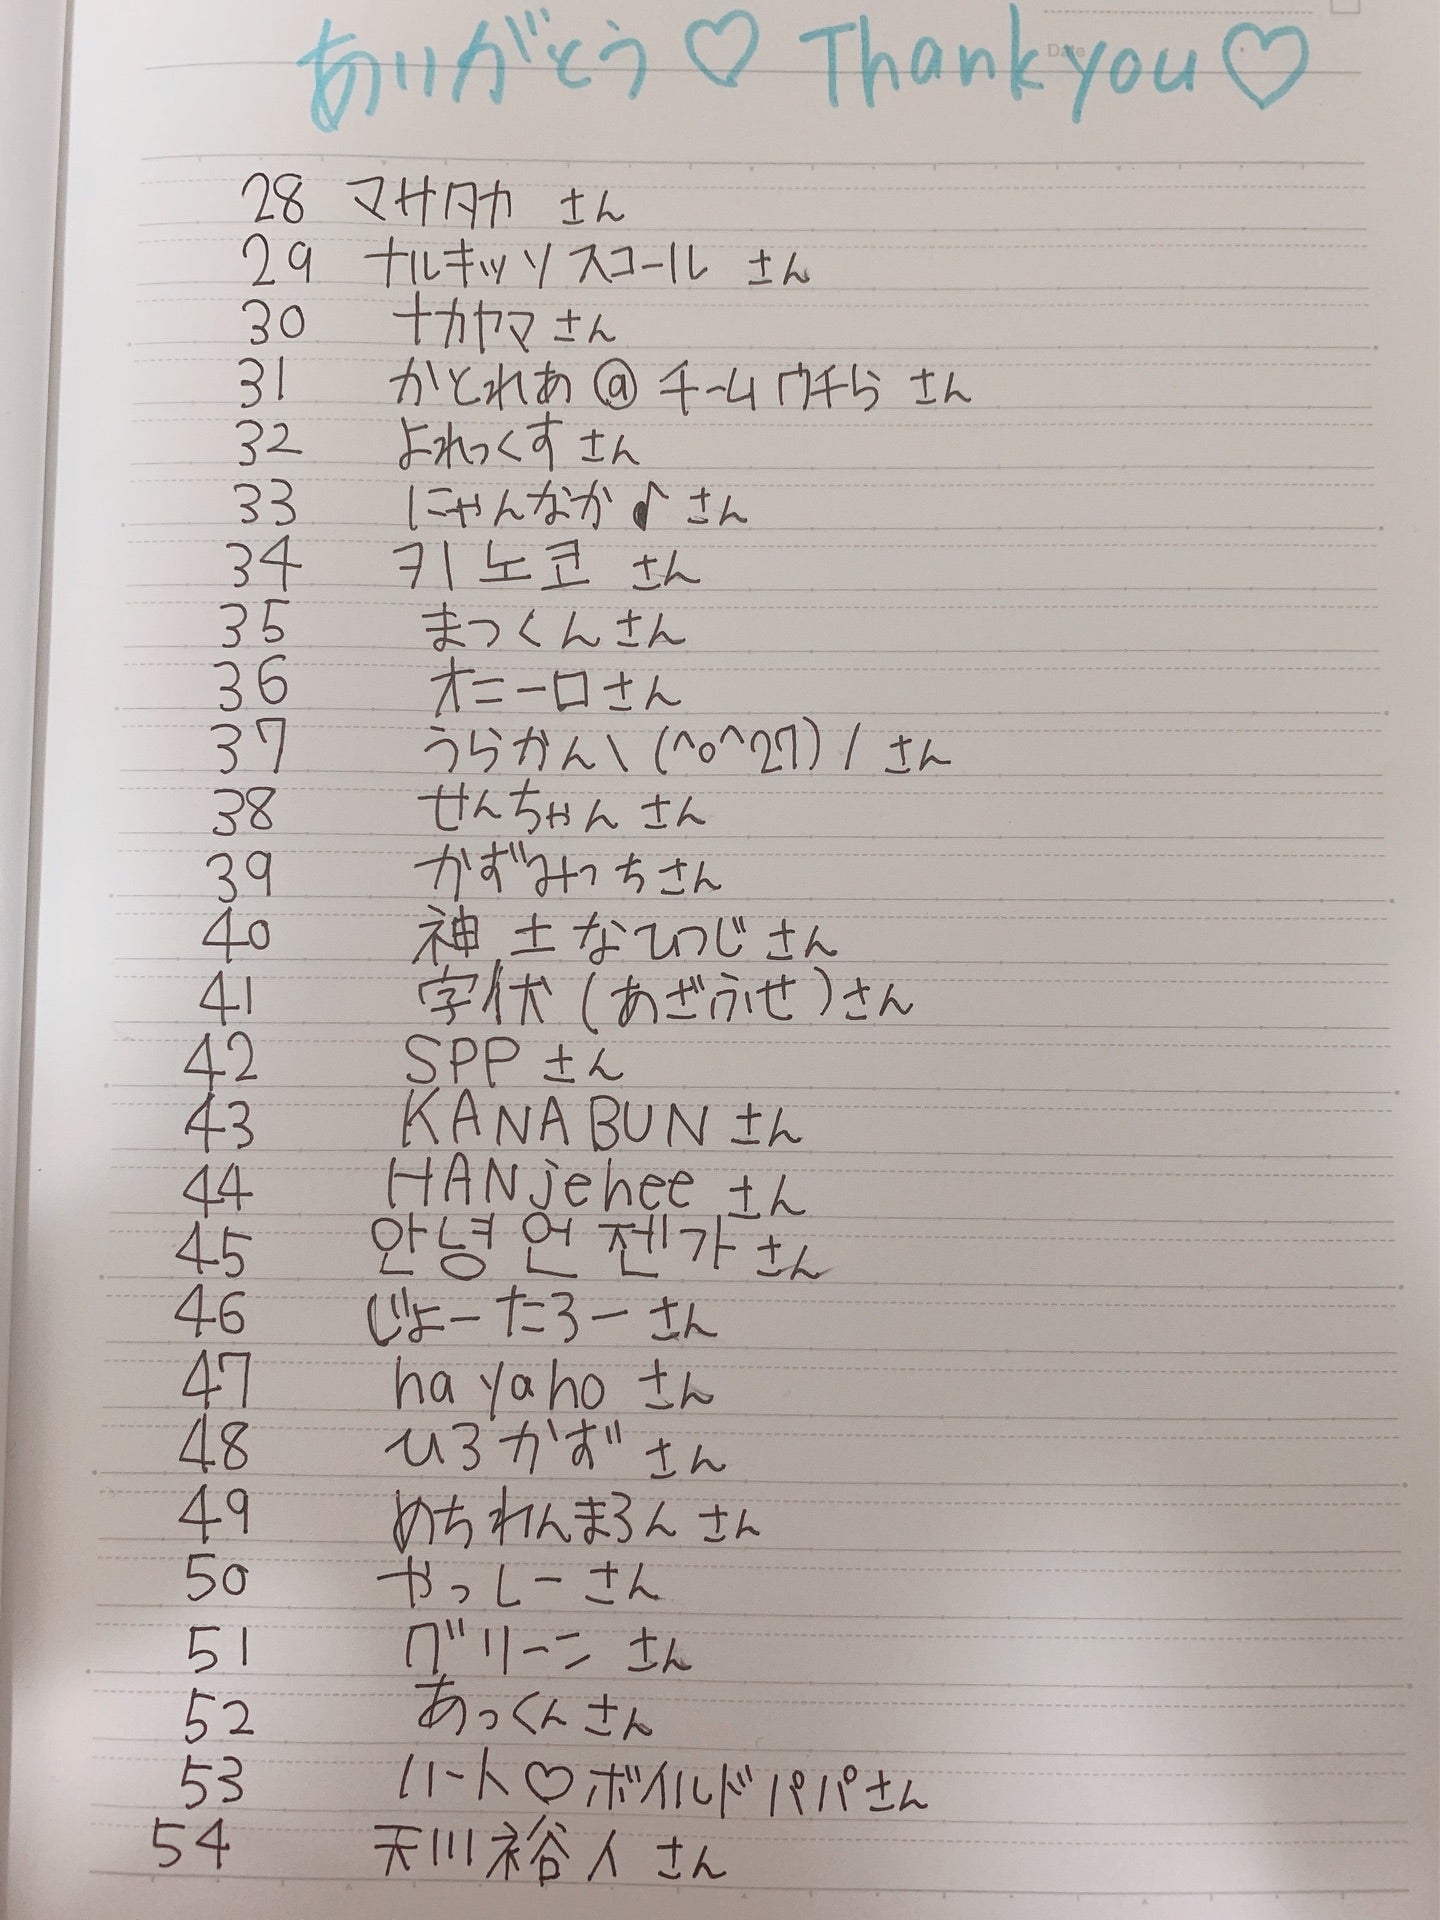 ありがとう♡ Thank you♡
Date
28 マサタカ さん
29 ナルキッソスコール さん
30 ナカヤマさん
31 かとれあ@チームウチら さん
32 よれっくす さん
33 にゃんなか♪ さん
34 키노코 さん
35 まっくんさん
36 オニーロさん
37 うらかん\(^o^27)/ さん
38 せんちゃん さん
39 かずみっちさん
40 神士なひつじさん
41 字伏(あざふせ)さん
42 SPP さん
43 KANABUN さん
44 HANjehee さん
45 안녕언젠가さん
46 じょーたろーさん
47 hayaho さん
48 ひろかず さん
49 めちれんまろん さん
50 やっしーさん
51 グリーン さん
52 あっくんさん
53 ハート♡ボイルドパパさん
54 天川裕人 さん